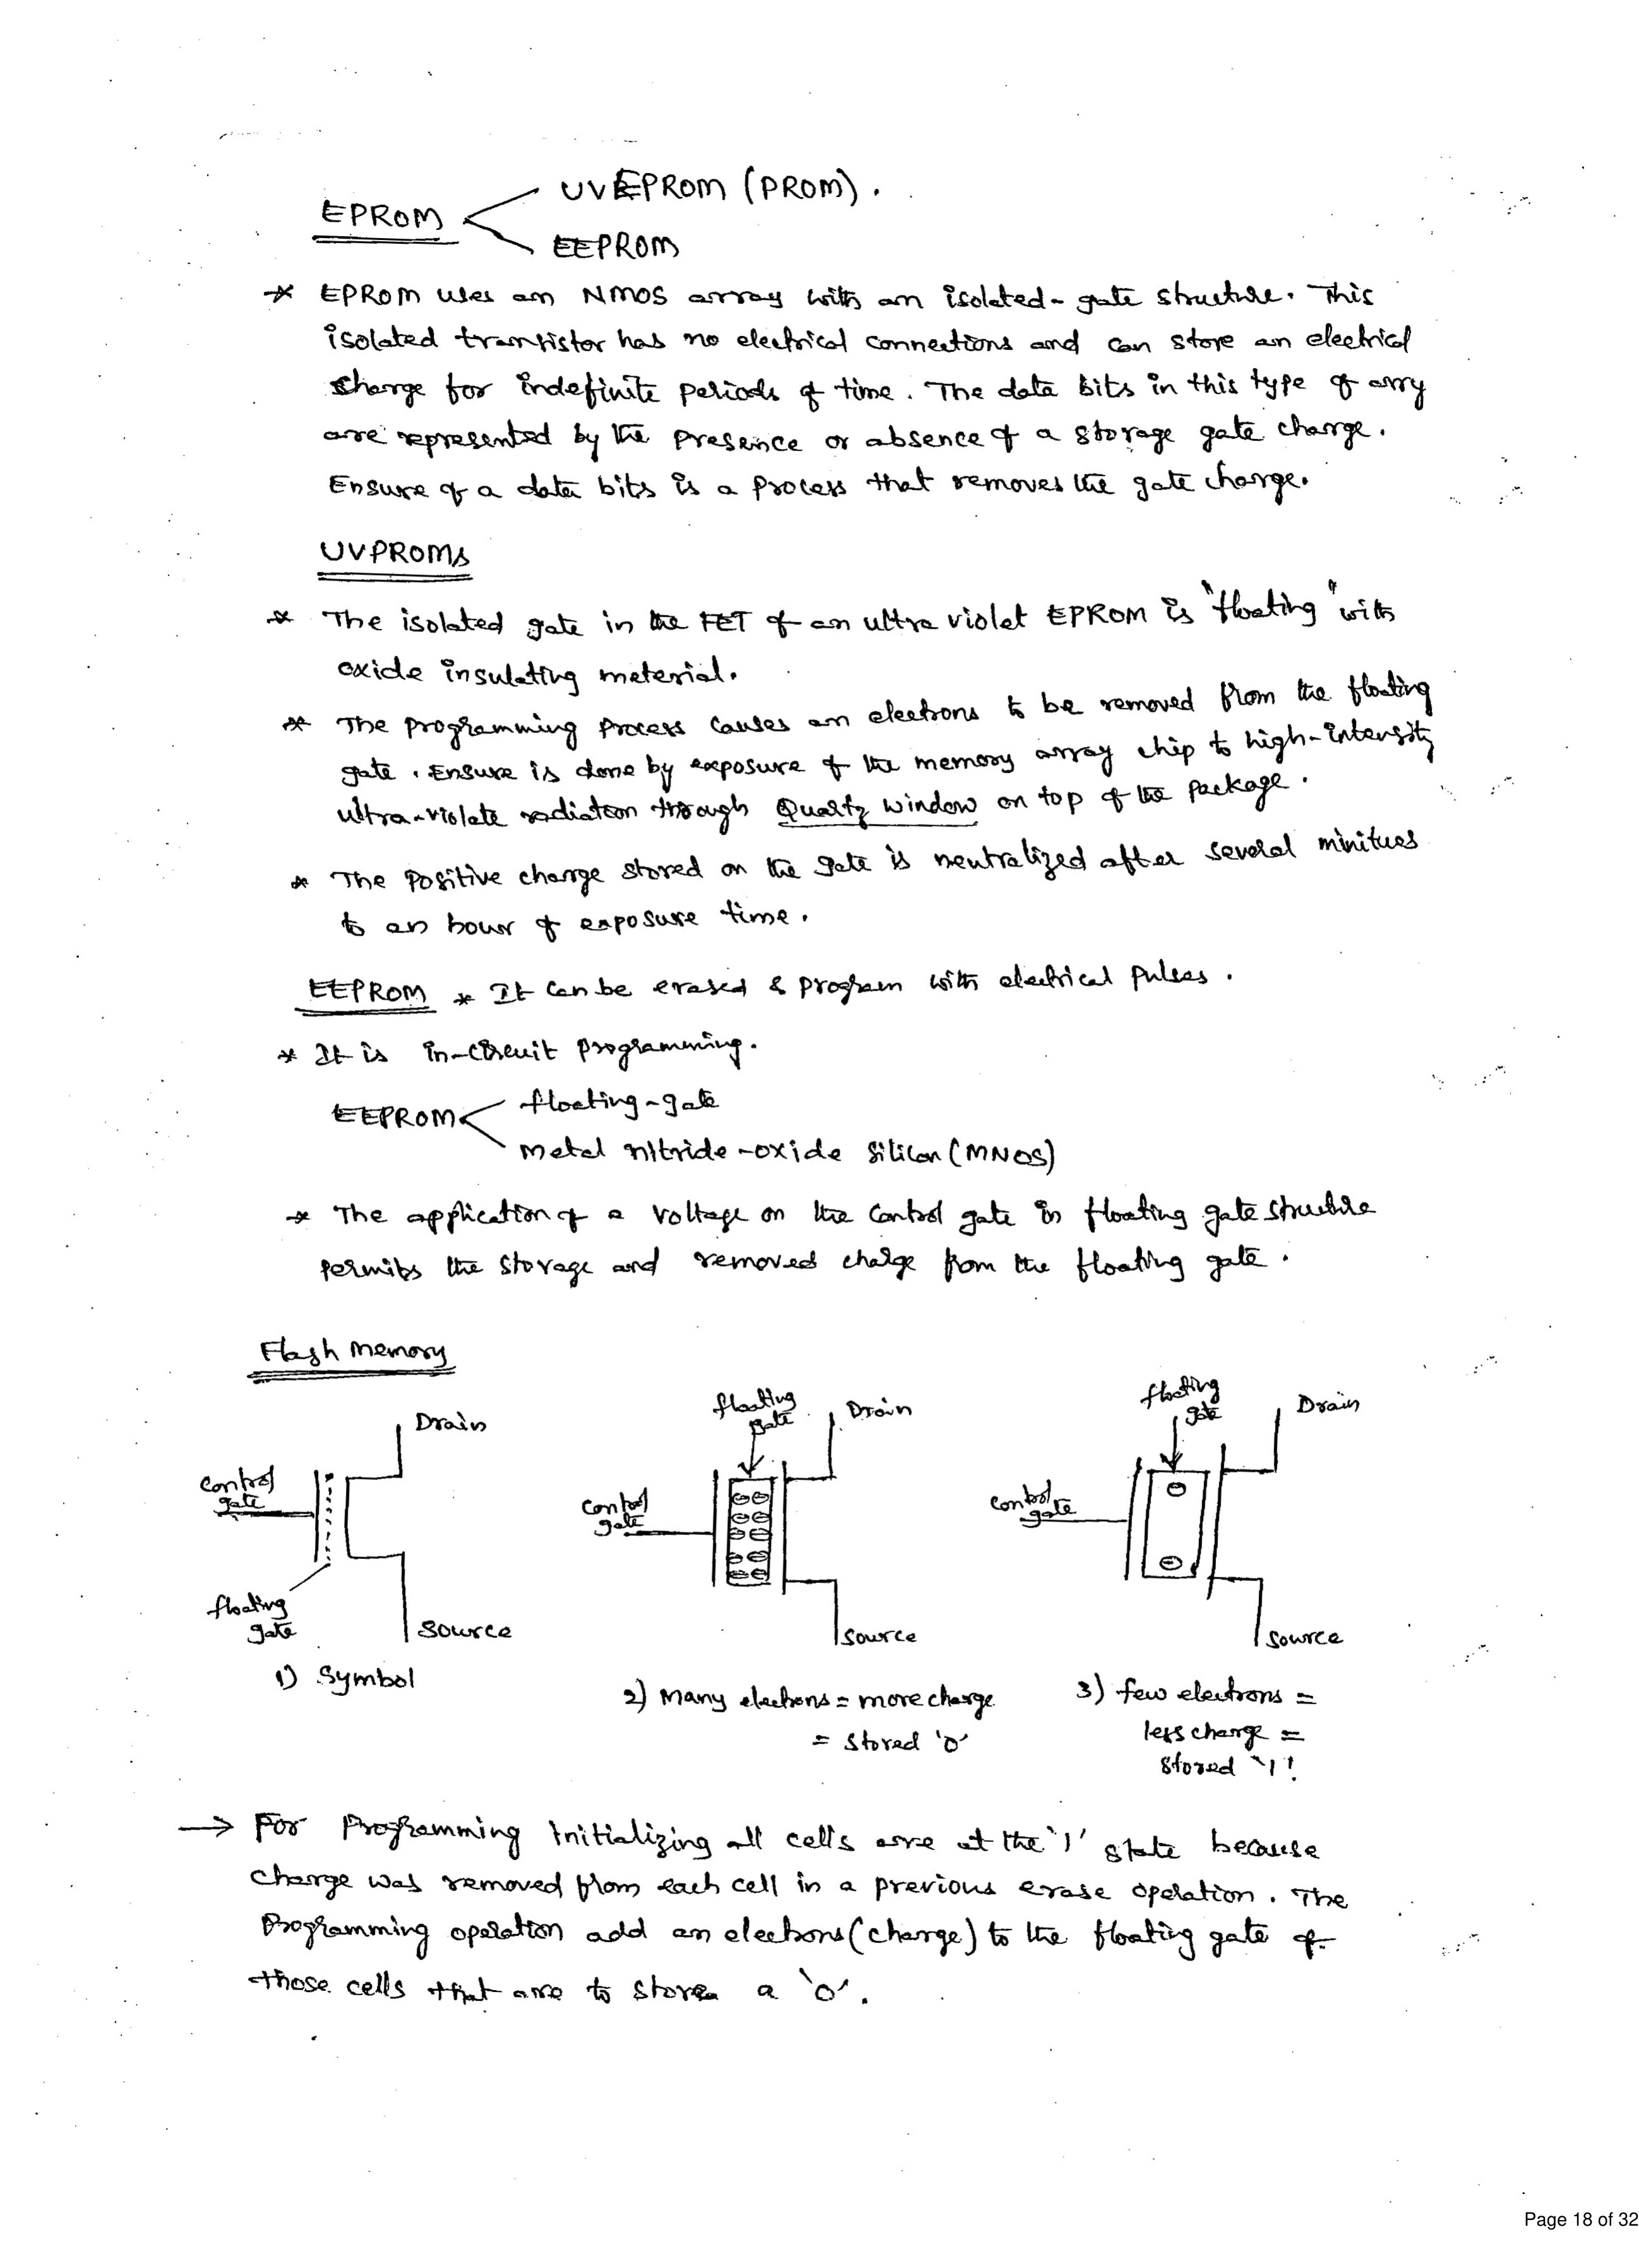 UVEPROM (PROM).
EPROM
EEPROM
* EPROM uses an NMOS array with an isolated-gate structure. This
isolated transistor has no electrical connections and can store an electrical
charge for indefinite periods of time. The data bits in this type of arry
are represented by the presence or absence of a storage gate charge.
Ensure of a data bits is a process that removes the gate charge.
UVPROMs
* The isolated gate in the FET of an ultra violet EPROM is "floating" with
oxide insulating meterial.
* The programming process causes an electrons to be removed from the floating
gate. Ensure is done by exposure of the memory array chip to high-intensity
ultra-violate radiation through Quartz window on top of the package.
* The Positive charge stored on the gate is neutralized after several minitues
to an hour of exposure time.
EEPROM * It can be erased & program with electrical pulses.
* It is in-circuit programming.
floating-gate
EEPROM
Metal nitride-oxide silicon (MNOS)
* The application of a voltage on the control gate in floating gate structure
permits the storage and removed charge from the floating gate.
Flash memory
Drain
control
gate
floating
gate
source
1) Symbol
floating
gate
Drain
control
gate
source
2) Many electrons = more charge
= stored '0'
floating
gate
Drain
control
gate
source
3) few electrons =
less charge =
stored '1'.
→ For Programming initializing all cells are at the '1' state because
charge was removed from each cell in a previous erase operation. The
Programming operation add an electrons (charge) to the floating gate of
those cells that are to store a '0'.
Page 18 of 32